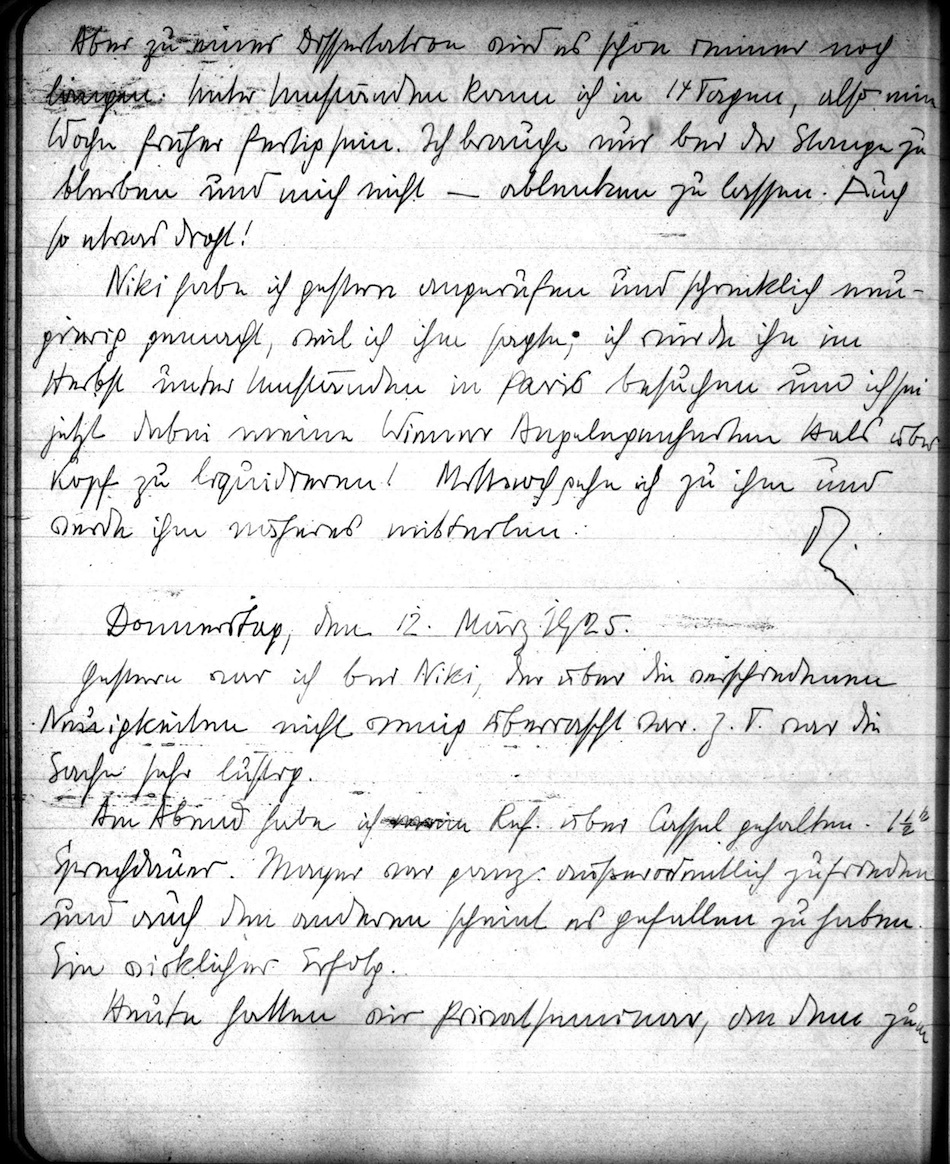 Aber zu einer Dissertation wird es schon immer noch
langen. Unter Umständen kann ich in 14 Tagen, also eine
Woche früher fertig sein. Ich brauche nur bei der Stange zu
bleiben und mich nicht — ablenken zu lassen. Auch
so etwas droht!
Niki habe ich gestern angerufen und schrecklich neu-
gierig gemacht, weil ich ihm sagte, ich würde ihn im
Herbst unter Umständen in Paris besuchen und ich sei
jetzt dabei meine Wiener Angelegenheiten Hals über
Kopf zu liquidieren! Mittwoch gehe ich zu ihm und
werde ihm näheres mitteilen.
Donnerstag, den 12. März 1925.
Gestern war ich bei Niki, der über die verschiedenen
Neuigkeiten nicht wenig überrascht war. Z. T. war die
Sache sehr lustig.
Am Abend habe ich mein Ref. über Cassel gehalten. 1½ h
Sprechdauer. Mayer war ganz außerordentlich zufrieden
und auch den anderen scheint es gefallen zu haben.
Ein wirklicher Erfolg.
Heute hatten wir Privatseminar, an dem zum